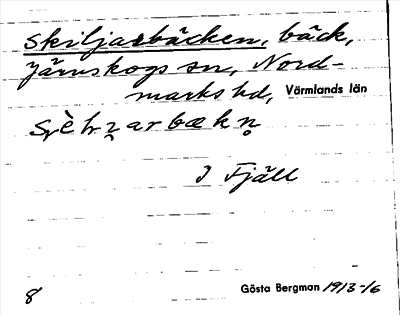 Skiljarbäcken, bäck,
Järnskogs sn, Nord-
marks hd, Värmlands län
I Fjäll
8
Gösta Bergman 1913-16